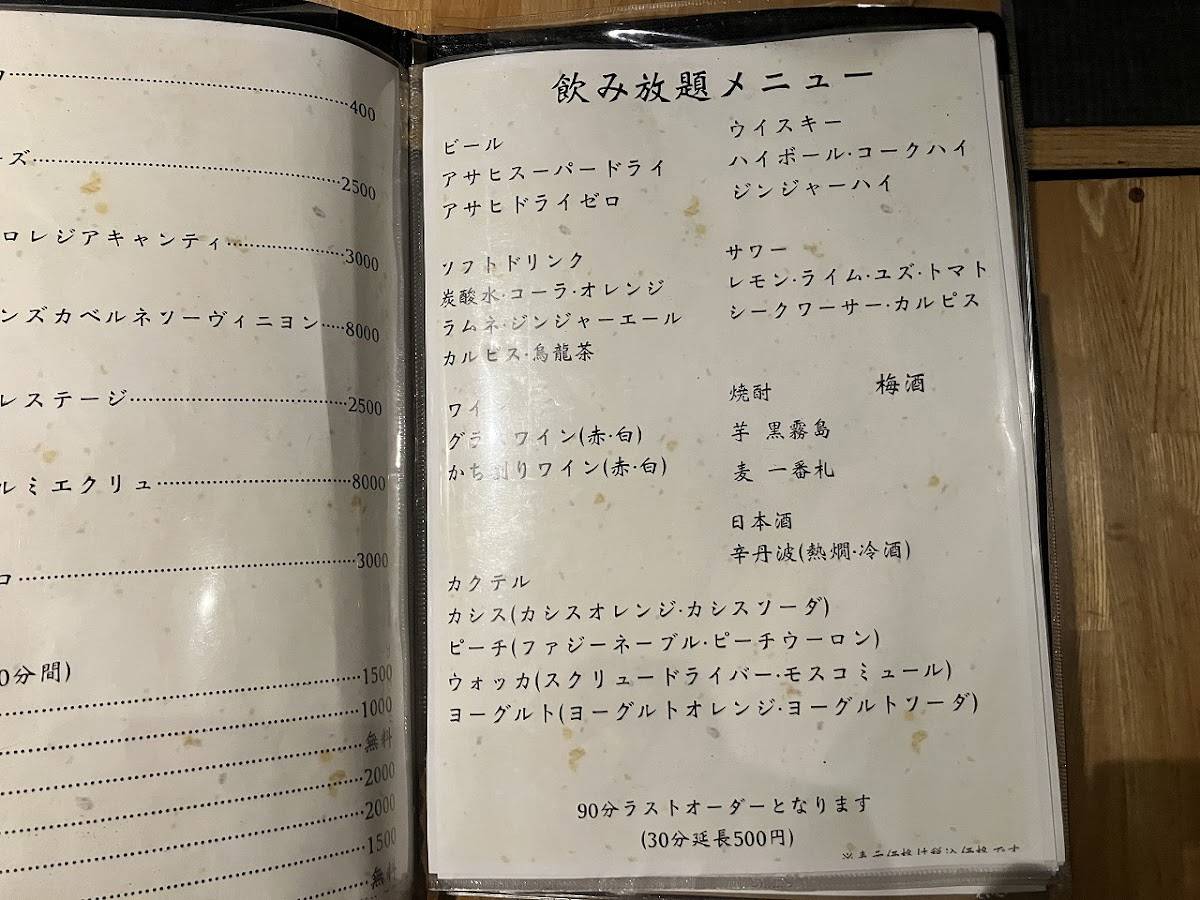 400
ーズ 2500
ロレジアキャンティ 3000
ンズカベルネソーヴィニヨン 8000
レステージ 2500
ルミエクリュ 8000
ロ 3000
0分間)
1500
1000
無料
2000
2000
1500
無料
飲み放題メニュー
ビール
アサヒスーパードライ
アサヒドライゼロ
ソフトドリンク
炭酸水・コーラ・オレンジ
ラムネ・ジンジャーエール
カルピス・烏龍茶
ワイ
グラスワイン(赤・白)
かち割りワイン(赤・白)
ウイスキー
ハイボール・コークハイ
ジンジャーハイ
サワー
レモン・ライム・ユズ・トマト
シークワーサー・カルピス
焼酎 梅酒
芋 黒霧島
麦 一番札
日本酒
辛丹波(熱燗・冷酒)
カクテル
カシス(カシスオレンジ・カシスソーダ)
ピーチ(ファジーネーブル・ピーチウーロン)
ウォッカ(スクリュードライバー・モスコミュール)
ヨーグルト(ヨーグルトオレンジ・ヨーグルトソーダ)
90分ラストオーダーとなります
(30分延長500円)
※表示価格は税込価格です